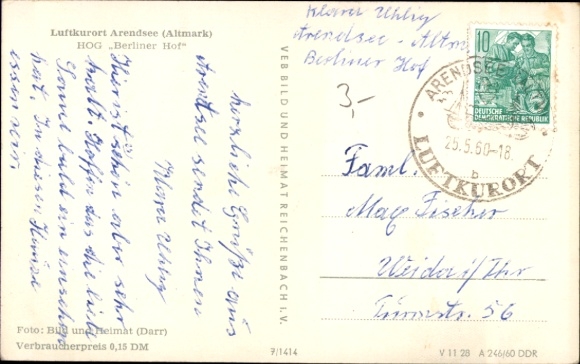 Luftkurort Arendsee (Altmark)
HOG „Berliner Hof"
Klara Uhlig
Arendsee - Altm.
Berliner Hof
10
DEUTSCHE
DEMOKRATISCHE REPUBLIK
ARENDSEE
25.5.60-18
b
LUFTKURORT
3,-
herzliche Grüße aus
Arendsee sendet Ihnen
Klara Uhlig
Hier ist es schön aber sehr
kalt. Hoffen das die liebe
Sonne bald ein einsehen
hat. In diesem Hause
essen wir.
VEB BILD UND HEIMAT REICHENBACH I. V.
Faml.
Max Fischer
Weida i/Thr
Turmstr. 56
Foto: Bild und Heimat (Darr)
Verbraucherpreis 0,15 DM
7/1414
V 11 28 A 246/60 DDR